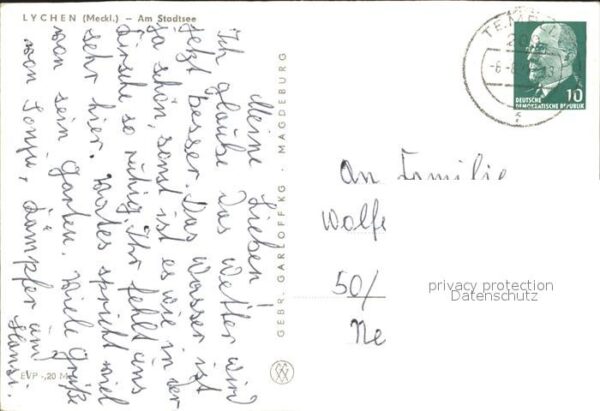 LYCHEN (Meckl.) — Am Stadtsee
Meine Lieben!
Ich glaube das Wetter wird
jetzt besser. Das Wasser ist
ja schön, sonst ist es wie in der
so ruhig. Ihr fehlt uns
sehr hier. spricht viel
von sein Garten. Viele Grüße
von
Hansi.
EVP -,20 M
GEBR. GARLOFF KG · MAGDEBURG
TEMP
-6.-8.
10
DEUTSCHE
DEMOKRATISCHE REPUBLIK
An Familie
Wolfe
50/
Ne
privacy protection
Datenschutz